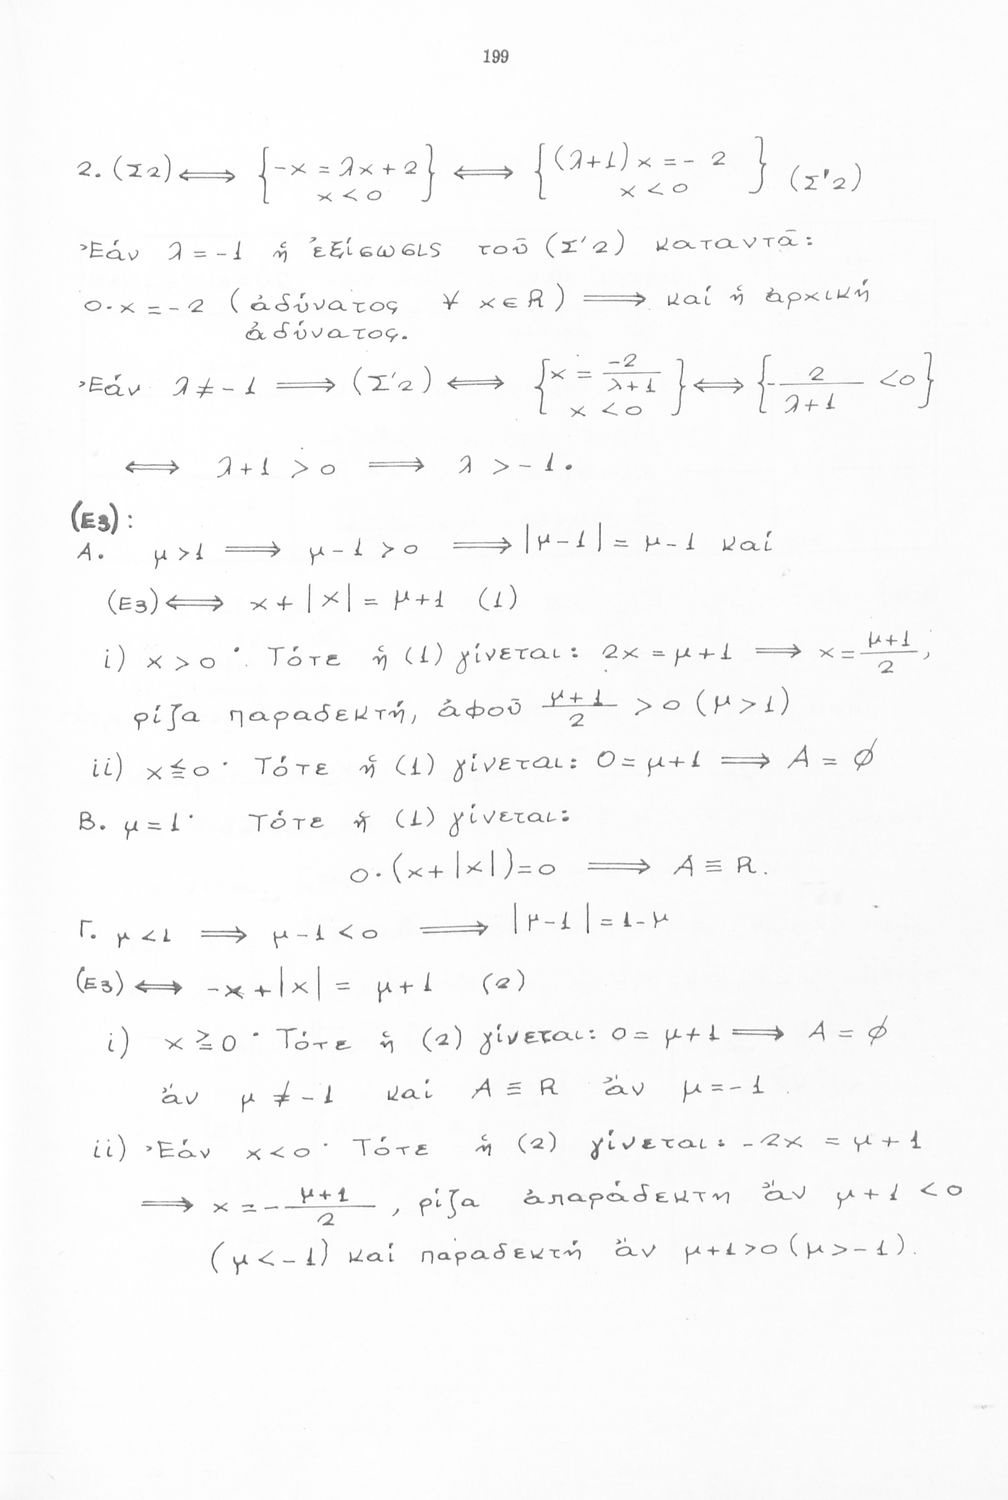 199
2. (Σ2) ⟺ {-x = λx + 2, x < 0} ⟺ {(λ+1)x = - 2, x < 0} (Σ'2)
Ἐάν λ = -1 ἡ ἐξίσωσις τοῦ (Σ'2) καταντᾶ:
0·x = -2 (ἀδύνατος ∀ x ∈ R) ⟹ καί ἡ ἀρχική
ἀδύνατος.
Ἐάν λ ≠ -1 ⟹ (Σ'2) ⟺ {x = -2/(λ+1), x < 0} ⟺ {- 2/(λ+1) < 0}
⟺ λ+1 > 0 ⟹ λ > -1.
(E3):
A. μ > 1 ⟹ μ - 1 > 0 ⟹ |μ-1| = μ-1 καί
(E3) ⟺ x + |x| = μ+1 (1)
i) x > 0 · Τότε ἡ (1) γίνεται: 2x = μ+1 ⟹ x = (μ+1)/2,
ρίζα παραδεκτή, ἀφοῦ (μ+1)/2 > 0 (μ > 1)
ii) x ≦ 0 · Τότε ἡ (1) γίνεται: 0 = μ+1 ⟹ A = ∅
B. μ = 1 · Τότε ἡ (1) γίνεται:
0·(x + |x|) = 0 ⟹ A ≡ R.
Γ. μ < 1 ⟹ μ - 1 < 0 ⟹ |μ-1| = 1-μ
(E3) ⟺ -x + |x| = μ+1 (2)
i) x ≧ 0 · Τότε ἡ (2) γίνεται: 0 = μ+1 ⟹ A = ∅
ἄν μ ≠ -1 καί A ≡ R ἄν μ = -1.
ii) Ἐάν x < 0 · Τότε ἡ (2) γίνεται: -2x = μ+1
⟹ x = - (μ+1)/2, ρίζα ἀπαράδεκτη ἄν μ+1 < 0
(μ < -1) καί παραδεκτή ἄν μ+1 > 0 (μ > -1).